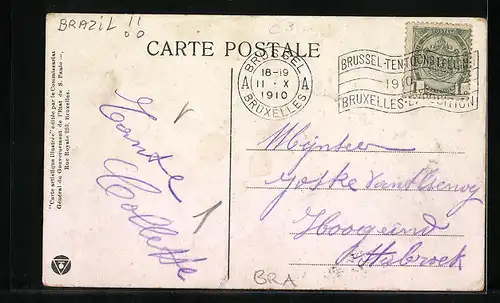 BRAZIL !!
00
CARTE POSTALE
BRUSSEL
18-19
A 11 · X A
1910
BRUXELLES
BRUSSEL-TENTOONSTELLING
1910
BRUXELLES-EXPOSITION
"Carte artistique illustrée" éditée par le Commissariat
Général du Gouvernement de l'Etat de S. Paulo —,
Rue Royale 283, Bruxelles.
Tante
Collette
Mijnheer
Hoogeind
BRA